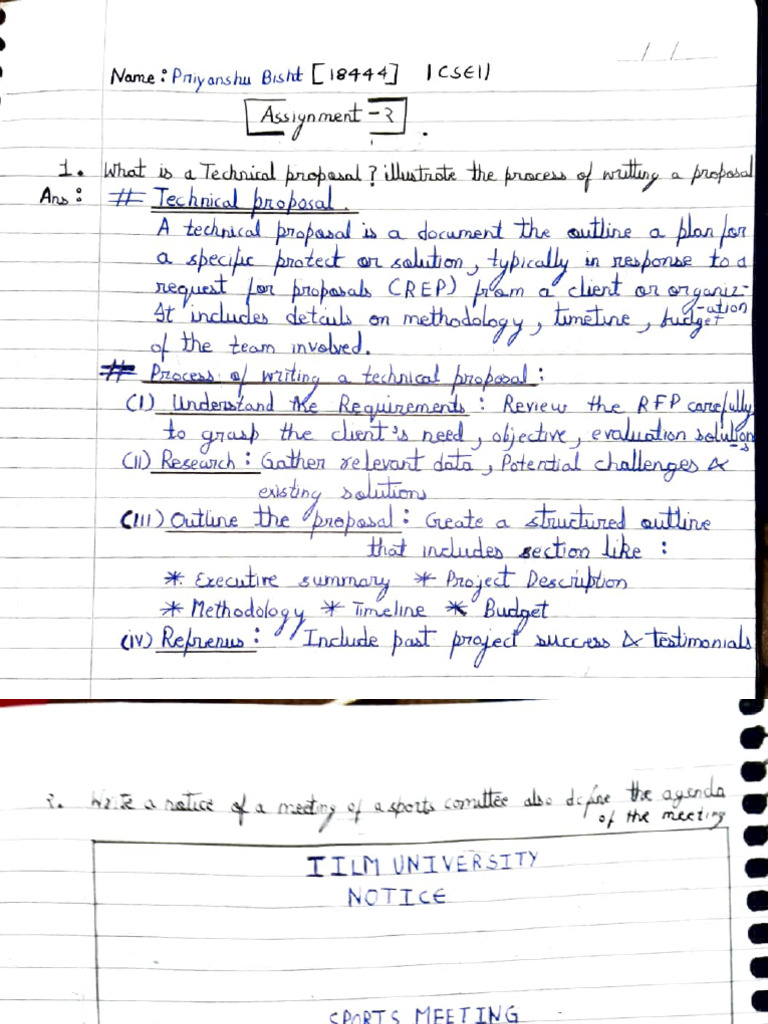 / /
Name: Priyanshu Bisht [18444] 1CSE11
Assignment-2
1. What is a Technical proposal? illustrate the process of writting a proposal
Ans: # Technical proposal.
A technical proposal is a document the outline a plan for
a specific protect or solution, typically in response to a
request for proposals (REP) from a client or organiz-
-ation
It includes details on methodology, timeline, budget
of the team involved.
# Process of writing a technical proposal:
(I) Understand the Requirements: Review the RFP carefully
to grasp the client's need, objective, evaluation solution
-s
(II) Research: Gather relevant data, Potential challenges &
existing solutions
(III) Outline the proposal: Create a structured outline
that includes section like:
* Executive summary * Project Description
* Methodology * Timeline * Budget
(iv) Refrenus: Include past project success & testimonials
2. Write a notice of a meeting of a sports comittee also define the agenda
of the meeting
IILM UNIVERSITY
NOTICE
SPORTS MEETING